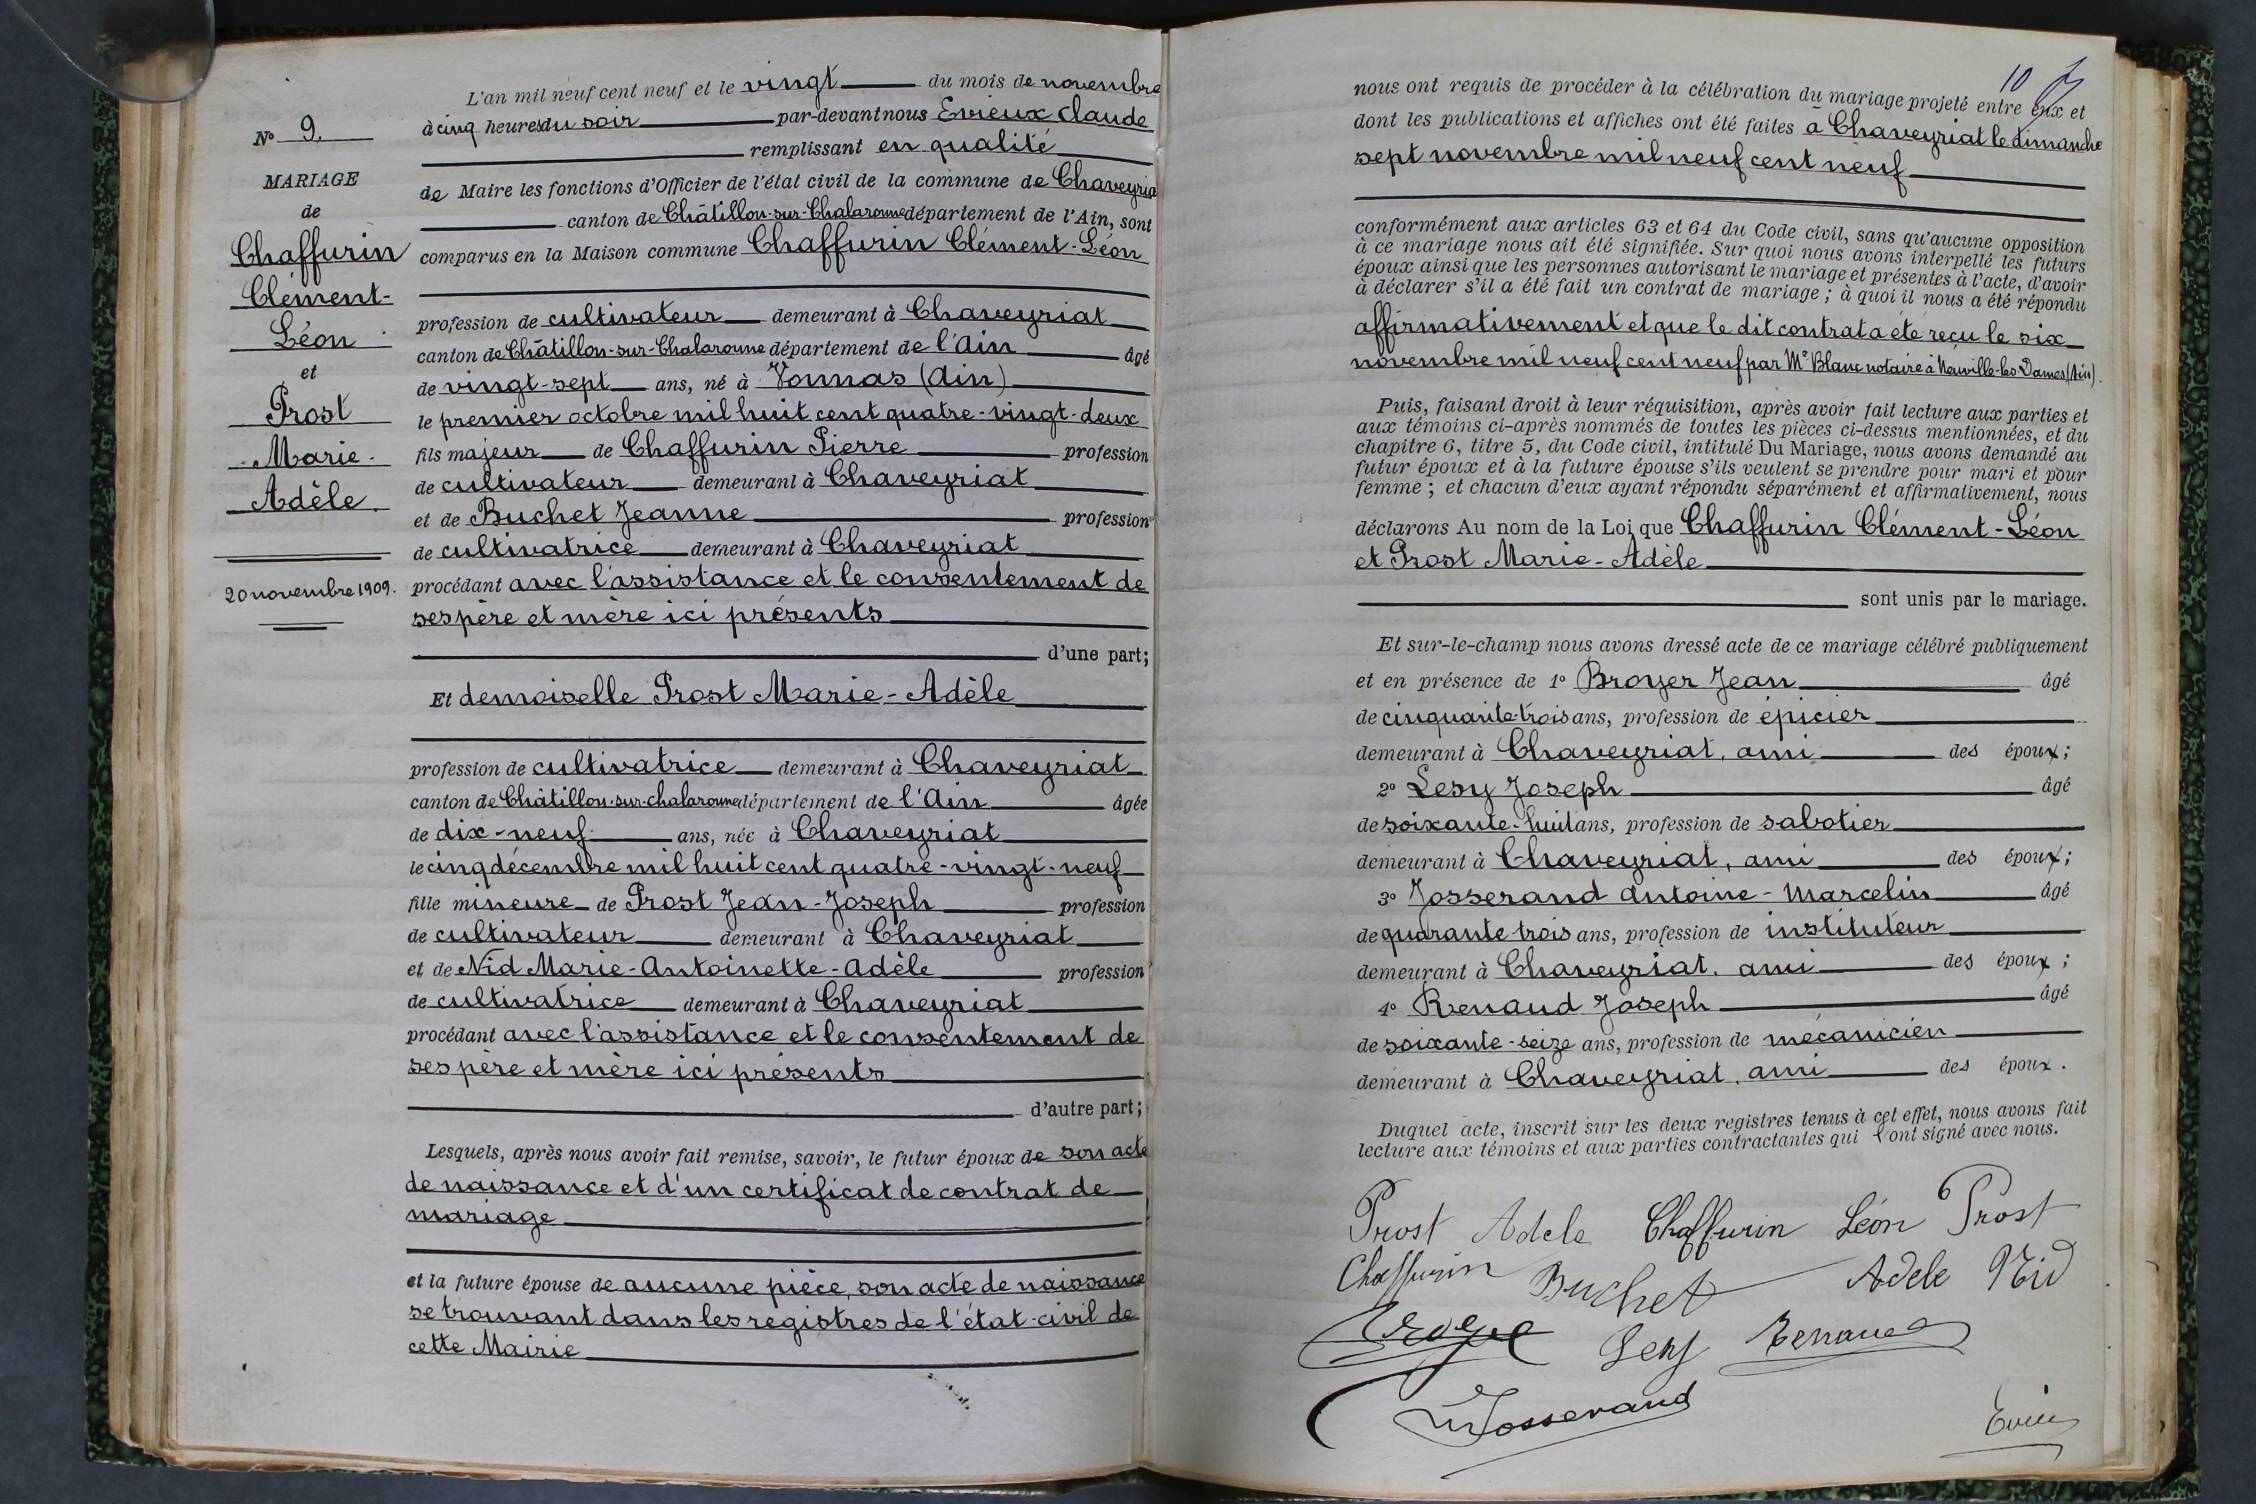 N° 9.
MARIAGE
de
Chaffurin
Clément-
Léon
et
Prost
Marie
Adèle.
20 novembre 1909.
L'an mil neuf cent neuf et le vingt du mois de novembre
à cinq heures du soir par-devant nous Evieux Claude
remplissant en qualité
de Maire les fonctions d'Officier de l'état civil de la commune de Chaveyria
canton de Châtillon-sur-Chalaronne département de l'Ain, sont
comparus en la Maison commune Chaffurin Clément-Léon
profession de cultivateur demeurant à Chaveyriat
canton de Châtillon-sur-Chalaronne département de l'Ain âgé
de vingt-sept ans, né à Vonnas (Ain)
le premier octobre mil huit cent quatre-vingt-deux
fils majeur de Chaffurin Pierre profession
de cultivateur demeurant à Chaveyriat
et de Buchet Jeanne profession
de cultivatrice demeurant à Chaveyriat
procédant avec l'assistance et le consentement de
ses père et mère ici présents
d'une part;
Et demoiselle Prost Marie-Adèle
profession de cultivatrice demeurant à Chaveyriat
canton de Châtillon-sur-chalaronne département de l'Ain âgée
de dix-neuf ans, née à Chaveyriat
le cinq décembre mil huit cent quatre-vingt-neuf
fille mineure de Prost Jean-Joseph profession
de cultivateur demeurant à Chaveyriat
et de Nid Marie-Antoinette-Adèle profession
de cultivatrice demeurant à Chaveyriat
procédant avec l'assistance et le consentement de
ses père et mère ici présents
d'autre part;
Lesquels, après nous avoir fait remise, savoir, le futur époux de son acte
de naissance et d'un certificat de contrat de
mariage
et la future épouse de aucune pièce, son acte de naissance
se trouvant dans les registres de l'état-civil de
cette Mairie
10
nous ont requis de procéder à la célébration du mariage projeté entre eux et
dont les publications et affiches ont été faites à Chaveyriat le dimanche
sept novembre mil neuf cent neuf
conformément aux articles 63 et 64 du Code civil, sans qu'aucune opposition
à ce mariage nous ait été signifiée. Sur quoi nous avons interpellé les futurs
époux ainsi que les personnes autorisant le mariage et présentes à l'acte, d'avoir
à déclarer s'il a été fait un contrat de mariage ; à quoi il nous a été répondu
affirmativement et que le dit contrat a été reçu le six
novembre mil neuf cent neuf par Me Blanc notaire à Neuville-les-Dames (Ain).
Puis, faisant droit à leur réquisition, après avoir fait lecture aux parties et
aux témoins ci-après nommés de toutes les pièces ci-dessus mentionnées, et du
chapitre 6, titre 5, du Code civil, intitulé Du Mariage, nous avons demandé au
futur époux et à la future épouse s'ils veulent se prendre pour mari et pour
femme ; et chacun d'eux ayant répondu séparément et affirmativement, nous
déclarons Au nom de la Loi que Chaffurin Clément-Léon
et Prost Marie-Adèle
sont unis par le mariage.
Et sur-le-champ nous avons dressé acte de ce mariage célébré publiquement
et en présence de 1° Broyer Jean âgé
de cinquante-trois ans, profession de épicier
demeurant à Chaveyriat, ami des époux;
2° Lesy Joseph âgé
de soixante-huit ans, profession de sabotier
demeurant à Chaveyriat, ami des époux;
3° Josserand Antoine-Marcelin âgé
de quarante trois ans, profession de instituteur
demeurant à Chaveyriat, ami des époux ;
4° Renaud Joseph âgé
de soixante-seize ans, profession de mécanicien
demeurant à Chaveyriat, ami des époux.
Duquel acte, inscrit sur les deux registres tenus à cet effet, nous avons fait
lecture aux témoins et aux parties contractantes qui l'ont signé avec nous.
Prost Adele Chaffurin Léon Prost
Chaffurin Buchet Adèle Nid
Lesy Renaud
Josserand
Evieux